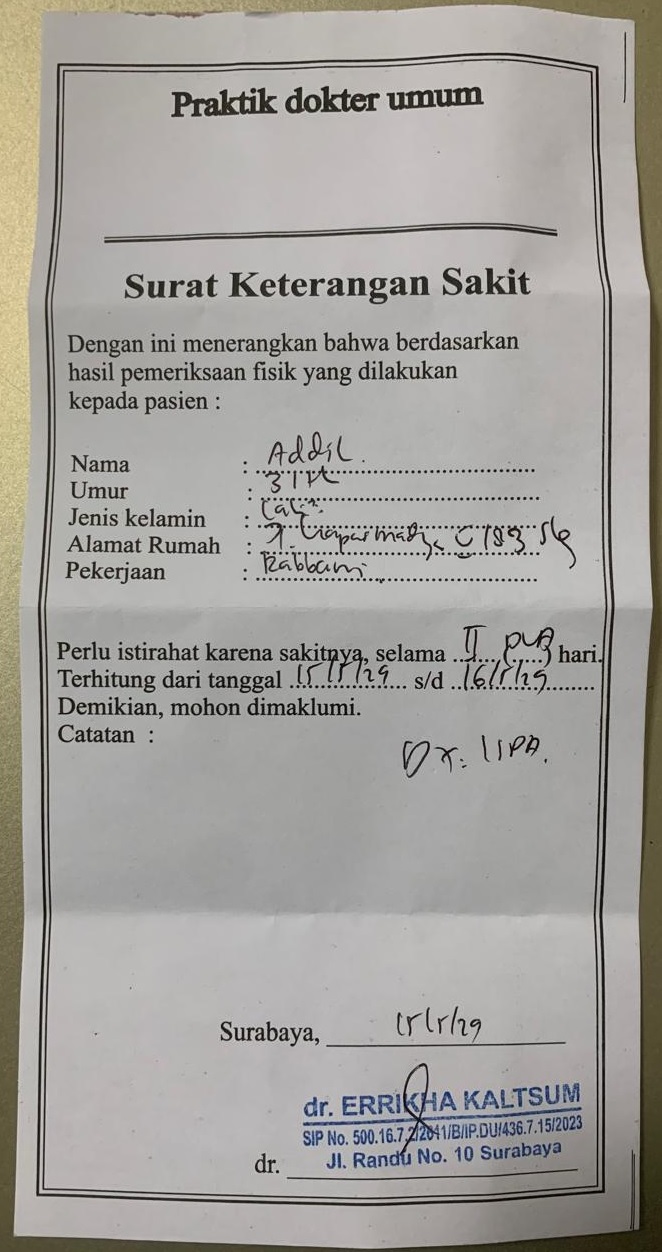 Praktik dokter umum
Surat Keterangan Sakit
Dengan ini menerangkan bahwa berdasarkan
hasil pemeriksaan fisik yang dilakukan
kepada pasien :
Nama : Addil
Umur : 31 th
Jenis kelamin :
Alamat Rumah : C 183
Pekerjaan : Rabbani
Perlu istirahat karena sakitnya, selama II (DUA) hari.
Terhitung dari tanggal 15/5/29 s/d 16/5/29
Demikian, mohon dimaklumi.
Catatan :
Dx: ISPA.
Surabaya, 15/5/29
dr. ERRIKHA KALTSUM
SIP No. 500.16.7.2/2041/B/IP.DU/436.7.15/2023
Jl. Randu No. 10 Surabaya
dr.